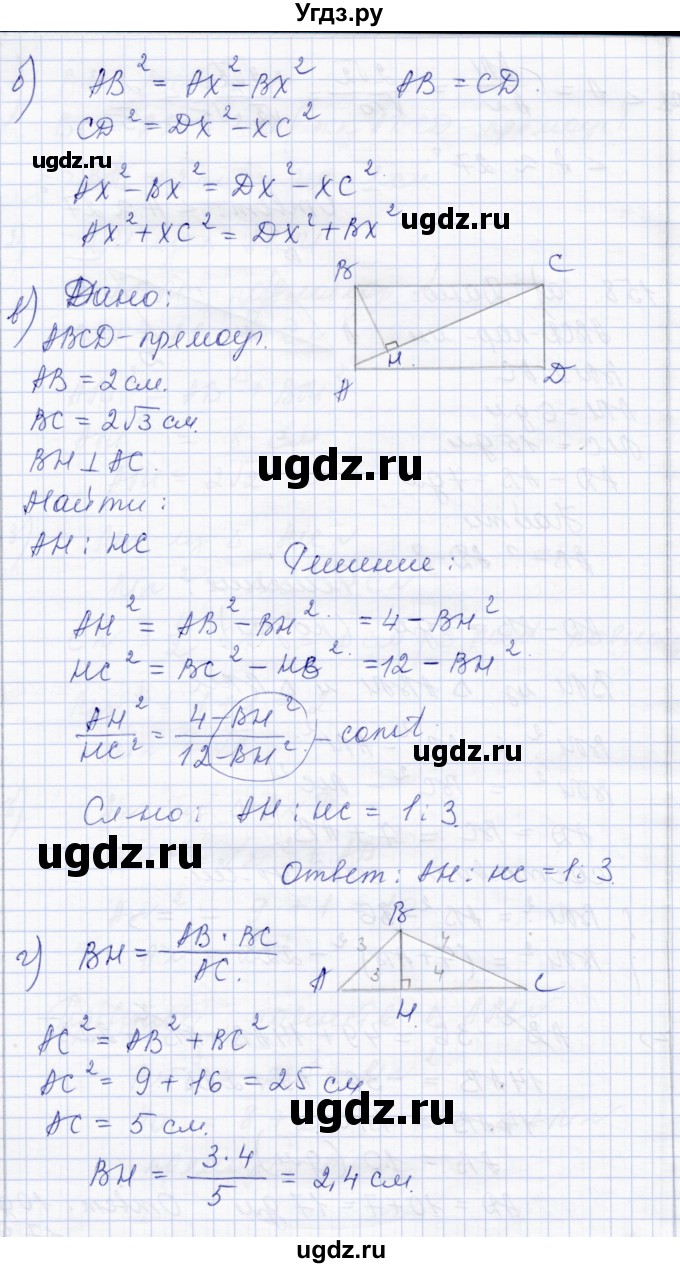 Угдз.ру
б) AB² = AX² – BX² AB = CD.
CD² = DX² – XC²
ugdz.ru
AX² – BX² = DX² – XC²
ugdz.ru
AX² + XC² = DX² + BX²
в) Дано:
B C
ABCD – прямоуг.
H.
A D
AB = 2 см.
BC = 2√3 см.
ugdz.ru
BH ⊥ AC.
Найти:
AH : HC
Решение:
AH² = AB² – BH² = 4 – BH²
HC² = BC² – HB² = 12 – BH²
AH²/HC² = (4 – BH²)/(12 – BH²) – const
ugdz.ru
Сл-но: AH : HC = 1 : 3
ugdz.ru
Ответ: AH : HC = 1 : 3.
г) BH = AB · BC / AC.
B
3 4
A 3 4 C
H.
AC² = AB² + BC²
AC² = 9 + 16 = 25 см
ugdz.ru
AC = 5 см.
BH = 3·4/5 = 2,4 см.
ugdz.ru